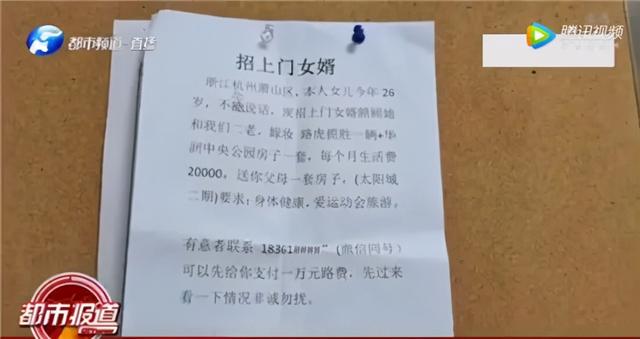 都市频道 直播
腾讯视频
招上门女婿
浙江杭州萧山区、本人女儿今年26
岁，不能说话，现招上门女婿照顾她
和我们二老，嫁妆 路虎揽胜一辆+华
润中央公园房子一套，每个月生活费
20000。送你父母一套房子，(太阳城
二期)要求：身体健康，爱运动会旅游。
有意者联系 18361####"（微信同号）
可以先给你支付一万元路费，先过来
看一下情况非诚勿扰。
都市报道